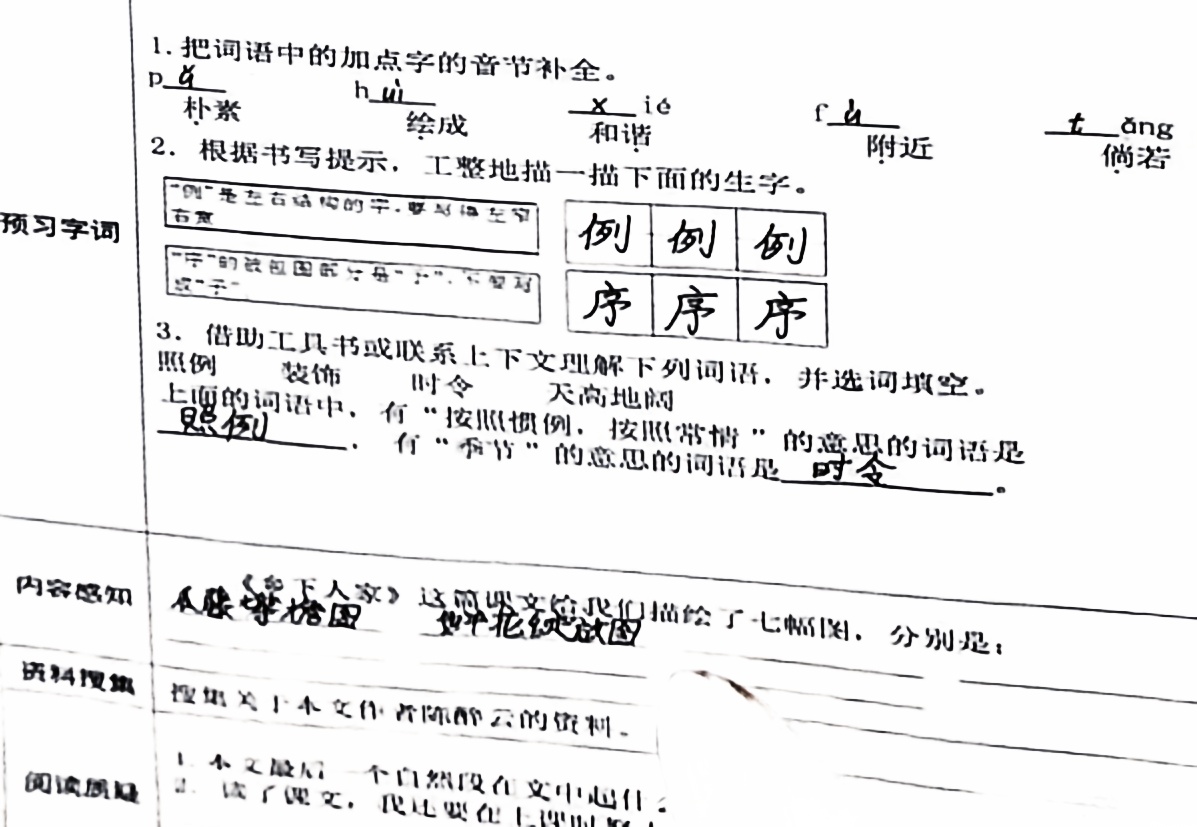 1. 把词语中的加点字的音节补全。
pǔ huì xié fù tǎng
朴素 绘成 和谐 附近 倘若
2. 根据书写提示，工整地描一描下面的生字。
预习字词
"例"是左右结构的字，要写得左窄
右宽
例 例 例
"序"的被包围部分是"予"，不要写
成"子"
序 序 序
3. 借助工具书或联系上下文理解下列词语，并选词填空。
照例 装饰 时令 天高地阔
上面的词语中，有"按照惯例，按照常情"的意思的词语是
照例，有"季节"的意思的词语是时令。
内容感知
《乡下人家》这篇课文给我们描绘了七幅图，分别是：
图 图
资料搜集
搜集关于本文作者陈醉云的资料。
阅读质疑
1. 本文最后一个自然段在文中起什
2. 读了课文，我还要在上课时